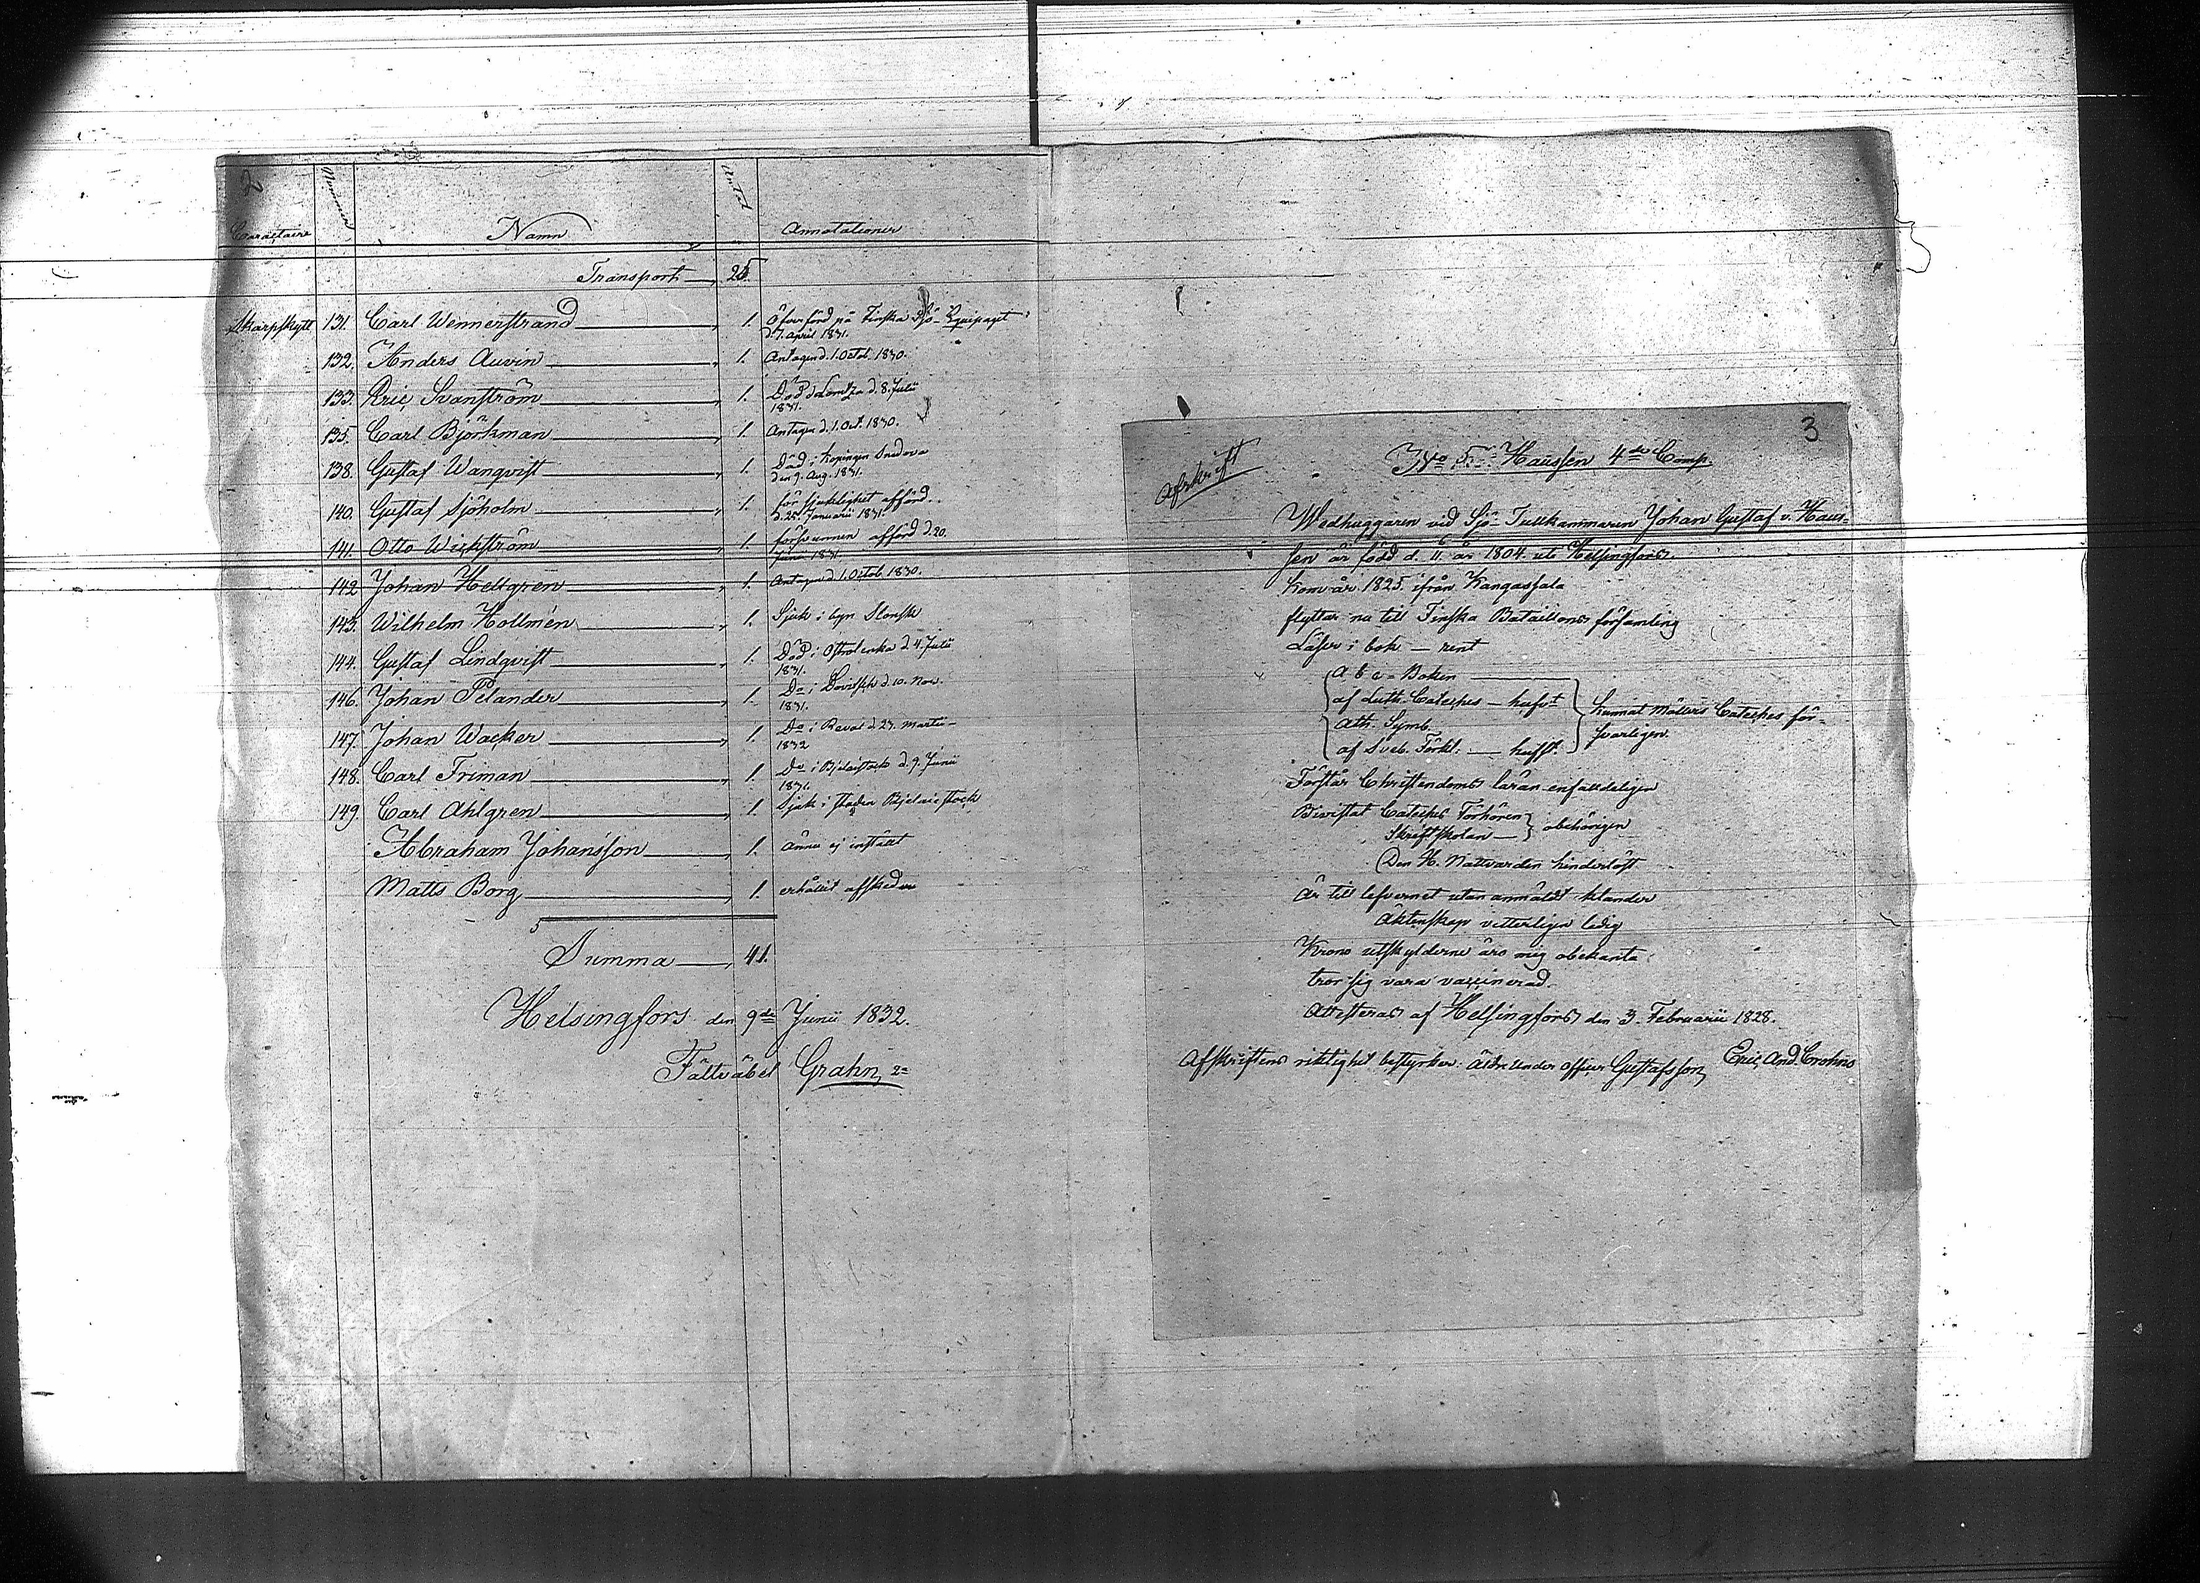 2
Caractaire Nummer Namn Antal Annotationer
Transport 25.
Skarpskytt 131. Carl Wennerstrand 1. Öfverförd på Finska Sjö-Equipaget
d. 7. April 1831.
132. Anders Auvin 1. Antagen d. 1. Octob. 1830.
133. Eric Svanström 1. Död i Lomza d. 8. Julii
1831.
135. Carl Björkman 1. Antagen d. 1. Oct. 1830.
138. Gustaf Wanqvist 1. Död i
den 9. Aug. 1831.
140. Gustaf Sjöholm 1. för sjuklighet afförd.
d. 25. Januarii 1831.
141. Otto Wickström 1. försvunnen afförd d. 20.
Junii 1831.
142. Johan Hellgren 1. Antagen d. 1. Octob. 1830.
143. Wilhelm Hollmén 1. Sjuk i byn Slonsk
144. Gustaf Lindqvist 1. Död i Ostrolenka d. 4. Julii
1831.
146. Johan Pelander 1. Do i Lovitsch d. 10. Nov.
1831.
147. Johan Wacker 1. Do i Reval d. 23. Martii
1832
148. Carl Friman 1. Do i d. 9. Junii
1831.
149. Carl Ahlgren 1. Sjuk i staden Bjelaistock
Abraham Johansson 1. ännu ej inställt
Matts Borg 1. erhållit afskeden
Summa 41.
Helsingfors den 9de Junii 1832.
Fältväbel Grahn, 2a
3
Afskrift
No 5. Haussen 4de Comp.
Wedhuggaren vid Sjö-Tullkammaren Johan Gustaf v. Haus-
sen är född d. 11. år 1804. uti Helsingfors.
Kom år 1825. ifrån Kangassala
flyttar nu till Finska Bataillons församling
Läser i bok — rent
a b c-Boken
af Luth. Cateches — hufvt
Ath. Symb.
af Sveb. Förkl. — hufft.
kunnat Möllers Cateches för-
svarligen.
Förstår Christendoms läran enfaldeligen
Biwistat Cateches Förhören
Skriftskolan — } obehörigen
Den H. Nattvarden hinderlöst
Är till lefvernet utan anmäldt klander
Äktenskap vitterligen ledig
Krono utskylderne äro mig obekanta
tror sig vara vaccinerad.
Attesteras af Helsingfors den 3. Februarii 1828.
Eric And. Crohns
Afskriftens riktighet bestyrker: Äldre Under Officer Gustafsson,